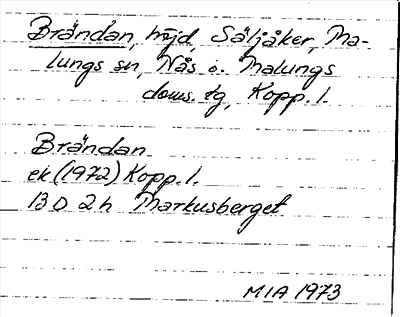 Brändan, höjd, Säljåker, Ma-
lungs sn, Nås o. Malungs
doms. tg, Kopp. l.
Brändan
ek (1972) Kopp. l.
13 D 2 h Markusberget
MIA 1973